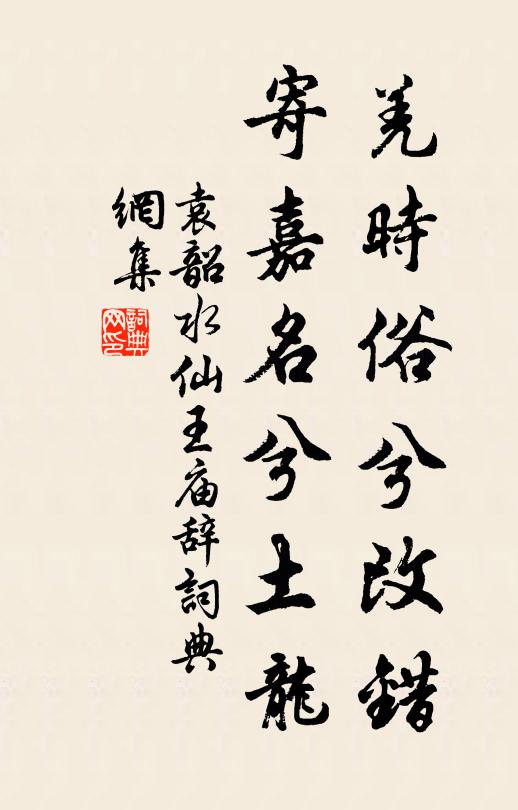 羌時俗兮改錯
寄嘉名兮土龍
袁韶水仙王庙辞詞典
網集
詞典
网印